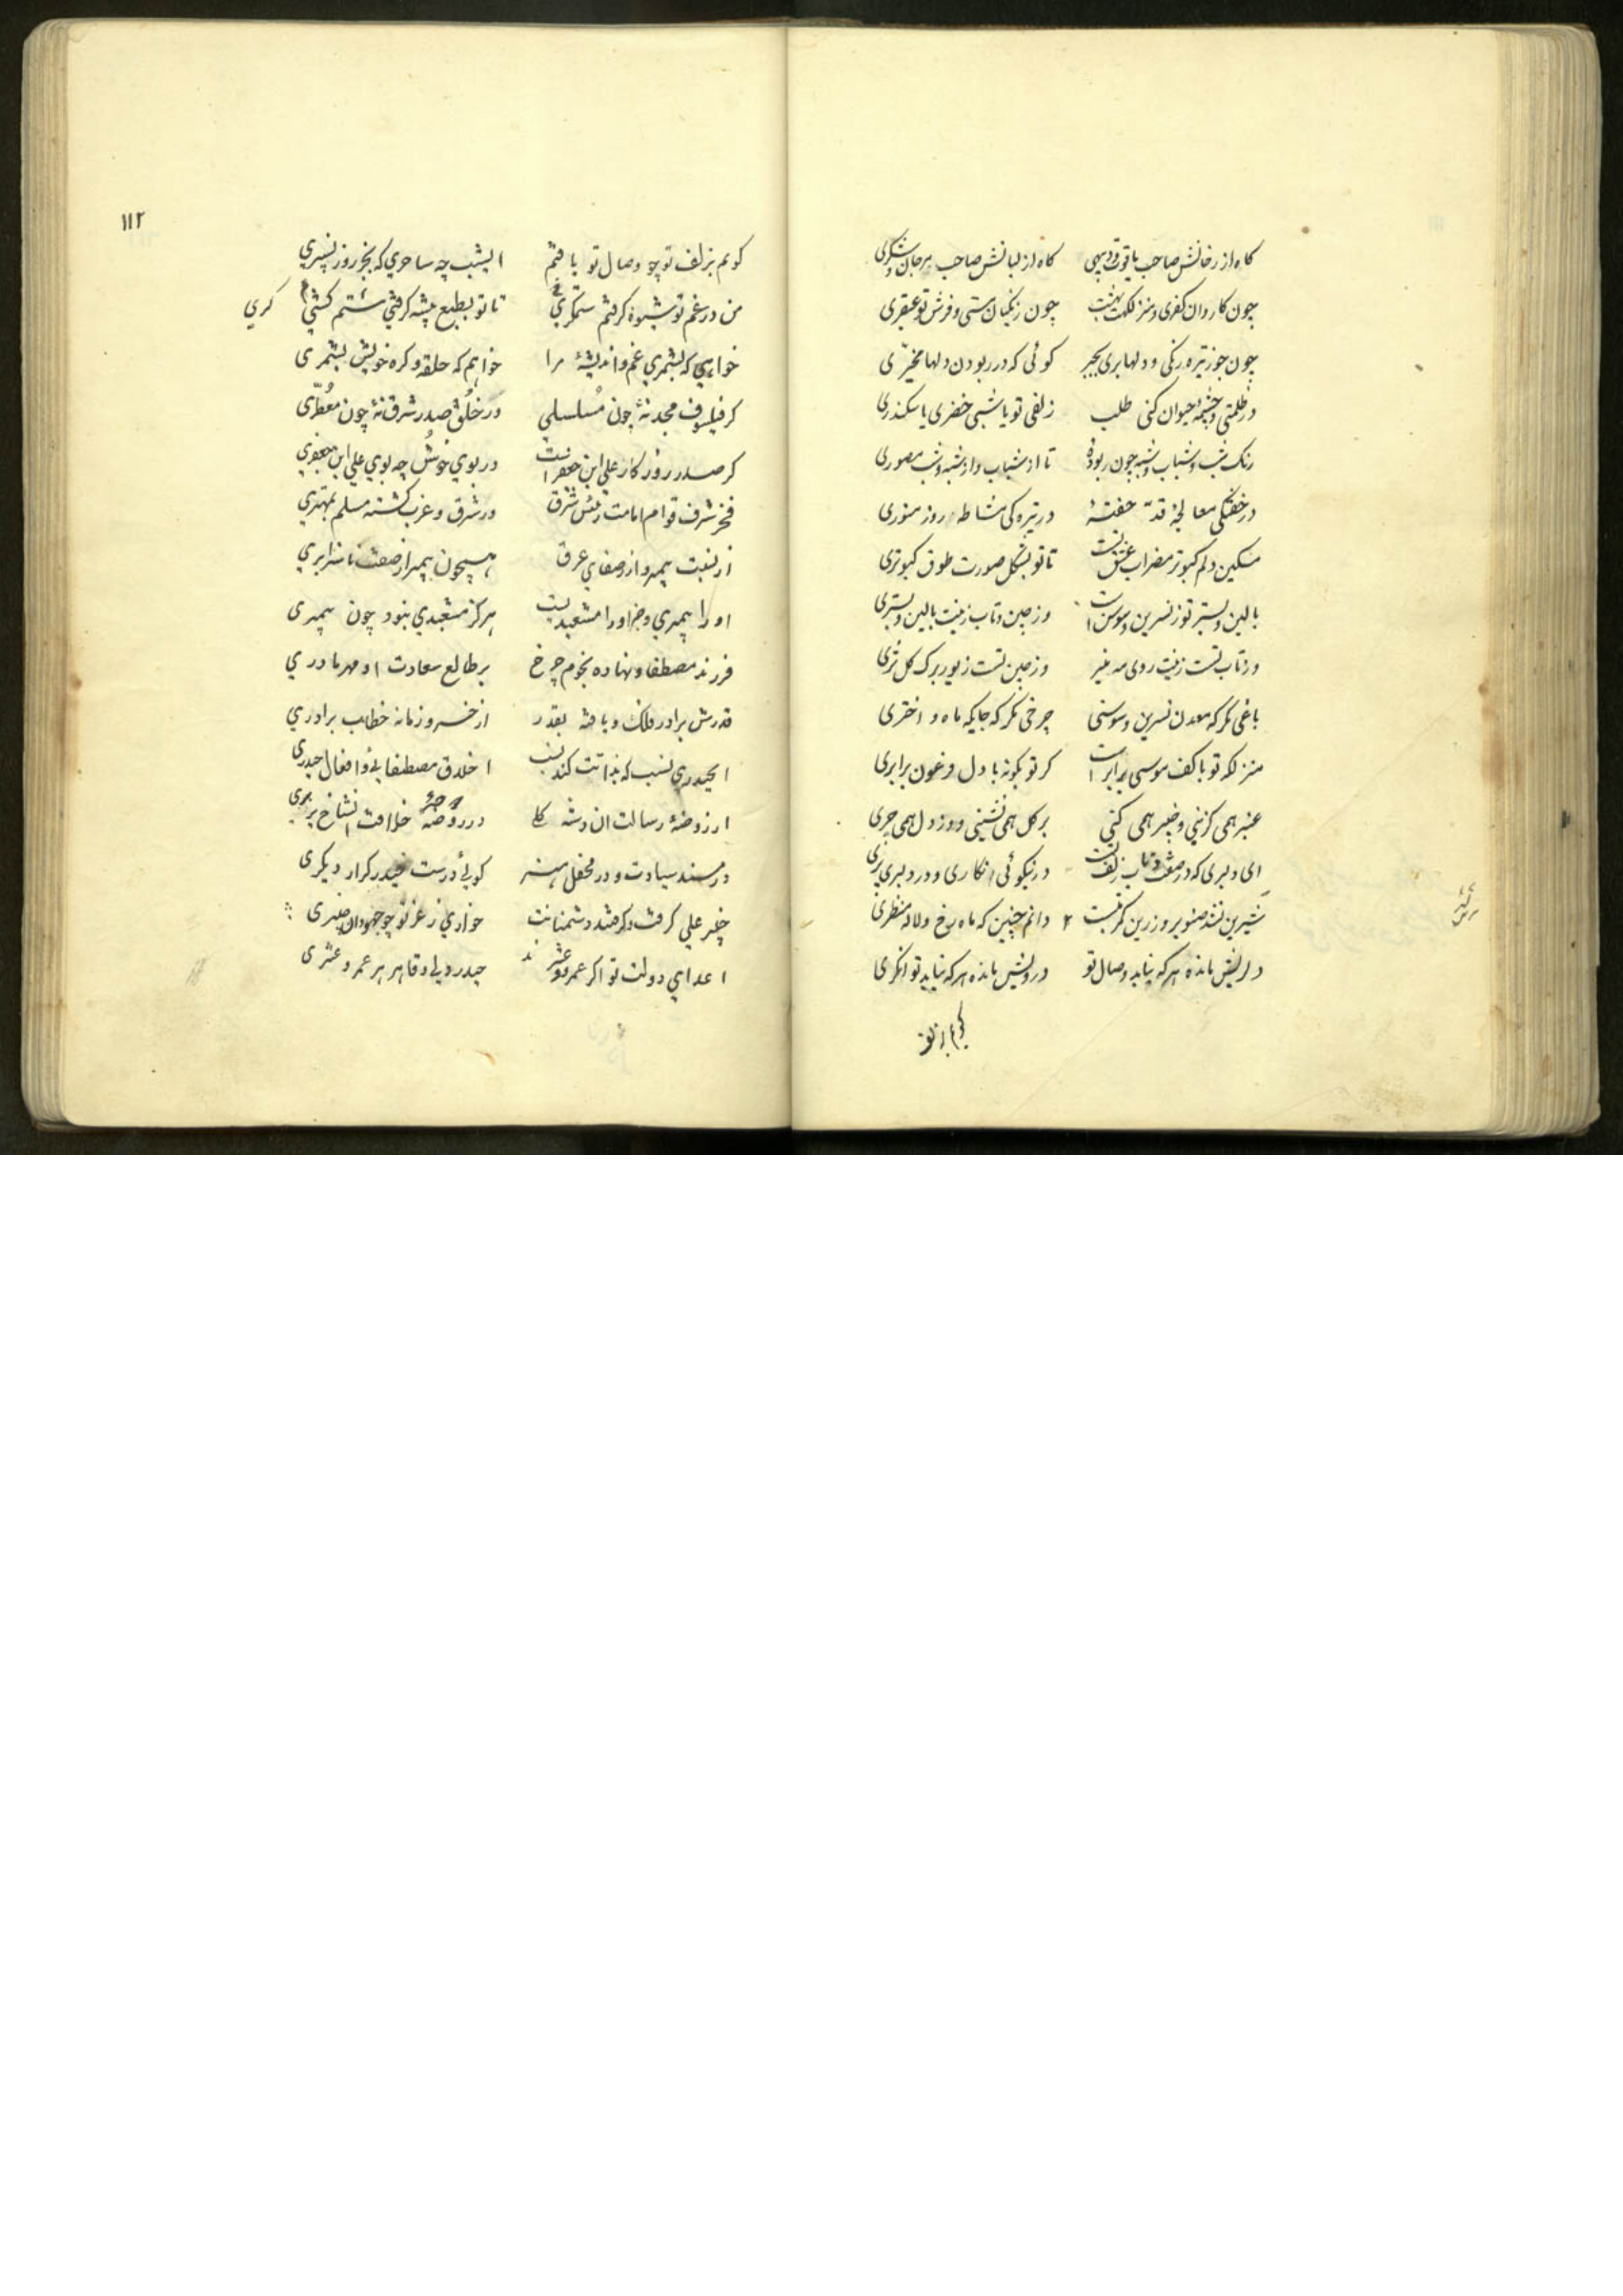 کاه از رخانش صاحب یاقوت و دیبهی کاه از لبانش صاحب مرجان و شکری
چون کاروان کفری و منزلکهت بهشت چون زنکیان مستی و فرش تو عبقری
چون جوز تیره رنکی و دلها بری بجبر کوئی که در ربودن دلها مخیّری
در ظلمتی و چشمهٔ حیوان کنی طلب زلفی تو یا شبی خضری یا سکندری
رنک شب و شباب و شبه چون ربودهٔ تا از شباب و از شبه و شب مصوری
در خفتکی معالجهٔ قدّ خفتهٔ در تیره کی مشاطهٔ روز منوری
مسکین دلم کبوتر مضراب عشق تست تا تو بشکل صورت طوق کبوتری
بالین و بستر تو ز نسرین و سوسن است وز چین و تاب زینت بالین و بستری
وز تاب تست زینت روی مه منیر وز چین تست زیور برک کل تری
باغی مکر که معدن نسرین و سوسنی چرخی مکر که جایکه ماه و اختری
منزلکه تو با کف موسی برابر است کر تو بکونه با دل فرعون برابری
عنبر همی کزینی و خیبر همی کنی بر کل همی نشینی و وز دل همی چری
ای دلبری که در صفت تاب زلف در نیکوئی نکاری و در دلبری پری
شیرین نشد صنوبر و زرین کمر نبست دانم چنین که ماه رخ و لاله منظری
دلریش مانده هر که نیابد وصال تو درویش مانده هر که نیابد توانکری
کویم بزلف
۱۱۲
کویم بزلف تو چو وصال تو یافتم ای شب چه ساحری که بجز روز نسپری
من در غم تو شیوه کرفتم ستمکری تا تو بطبع پیشه کرفتی ستم کشی کری
خواهی که بشمری غم و اندیشهٔ مرا خواهم که حلقه و کره خویش بشمری
کر فیلسوف مجد نهٔ چون مسلسلی ور خلق صدر شرق نهٔ چون معطّری
کر صدر روزکار علی ابن جعفر است در بوی خوش چه بوی علی ابن جعفری
فخر شرف قوام امامت رئیس شرق در شرق و غرب کشته مسلم بمهتری
از نسبت پیمبر و از صفای عرق همچون پیمبر از صفت ناسزا بری
او را پیمبری و جز او را مشعبدیست هرکز مشعبدی نبود چون پیمبری
فرزند مصطفا و نهاده نجوم چرخ بر طالع سعادت او مهر مادری
قدرش برادر فلک و یافته بقدر از خسرو زمانه خطاب برادری
ای حیدری نسب که بذاتت کند نسب اخلاق مصطفایی و افعال حیدری
از روضهٔ رسالت ان دسته کل در روضهٔ خلافت ان شاخ پر بری
در مسند سیادت و در محفل هنر کویی درست حیدر کرار دیکری
خیبر علی کرفت و کرفتند دشمنانت خواری ز عز تو چو جهودان خیبری
اعدای دولت تو اکر عمرو و عنترند حیدر دلی و قاهر هر عمرو و عنتری